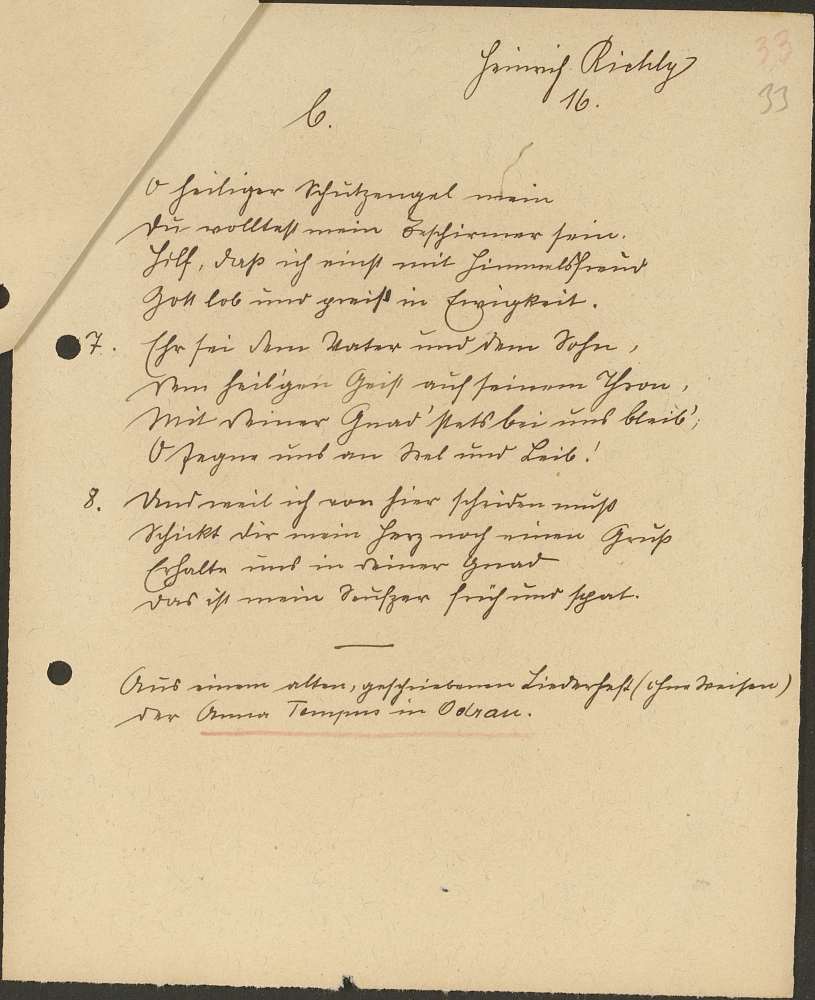 Heinrich Richly
33
16.
33
6.
O heiliger Schutzengel mein
Du wolltest mein Beschirmer sein.
Hilf, daß ich einst mit Himmelsfreud
Gott lob und preiß in Ewigkeit.
7. Ehr sei dem Vater und dem Sohn,
dem heil'gen Geist auf seinem Thron,
Mit deiner Gnad' stets bei uns bleib',
O segne uns an Seel und Leib!
8. Und weil ich von hier scheiden muß
Schickt dir mein Herz noch einen Gruß
Erhalte uns in deiner Gnad
das ist mein Seufzer früh und spat.
Aus einem alten, geschriebenen Liederheft (ohne Weisen)
der Anna in Odrau.